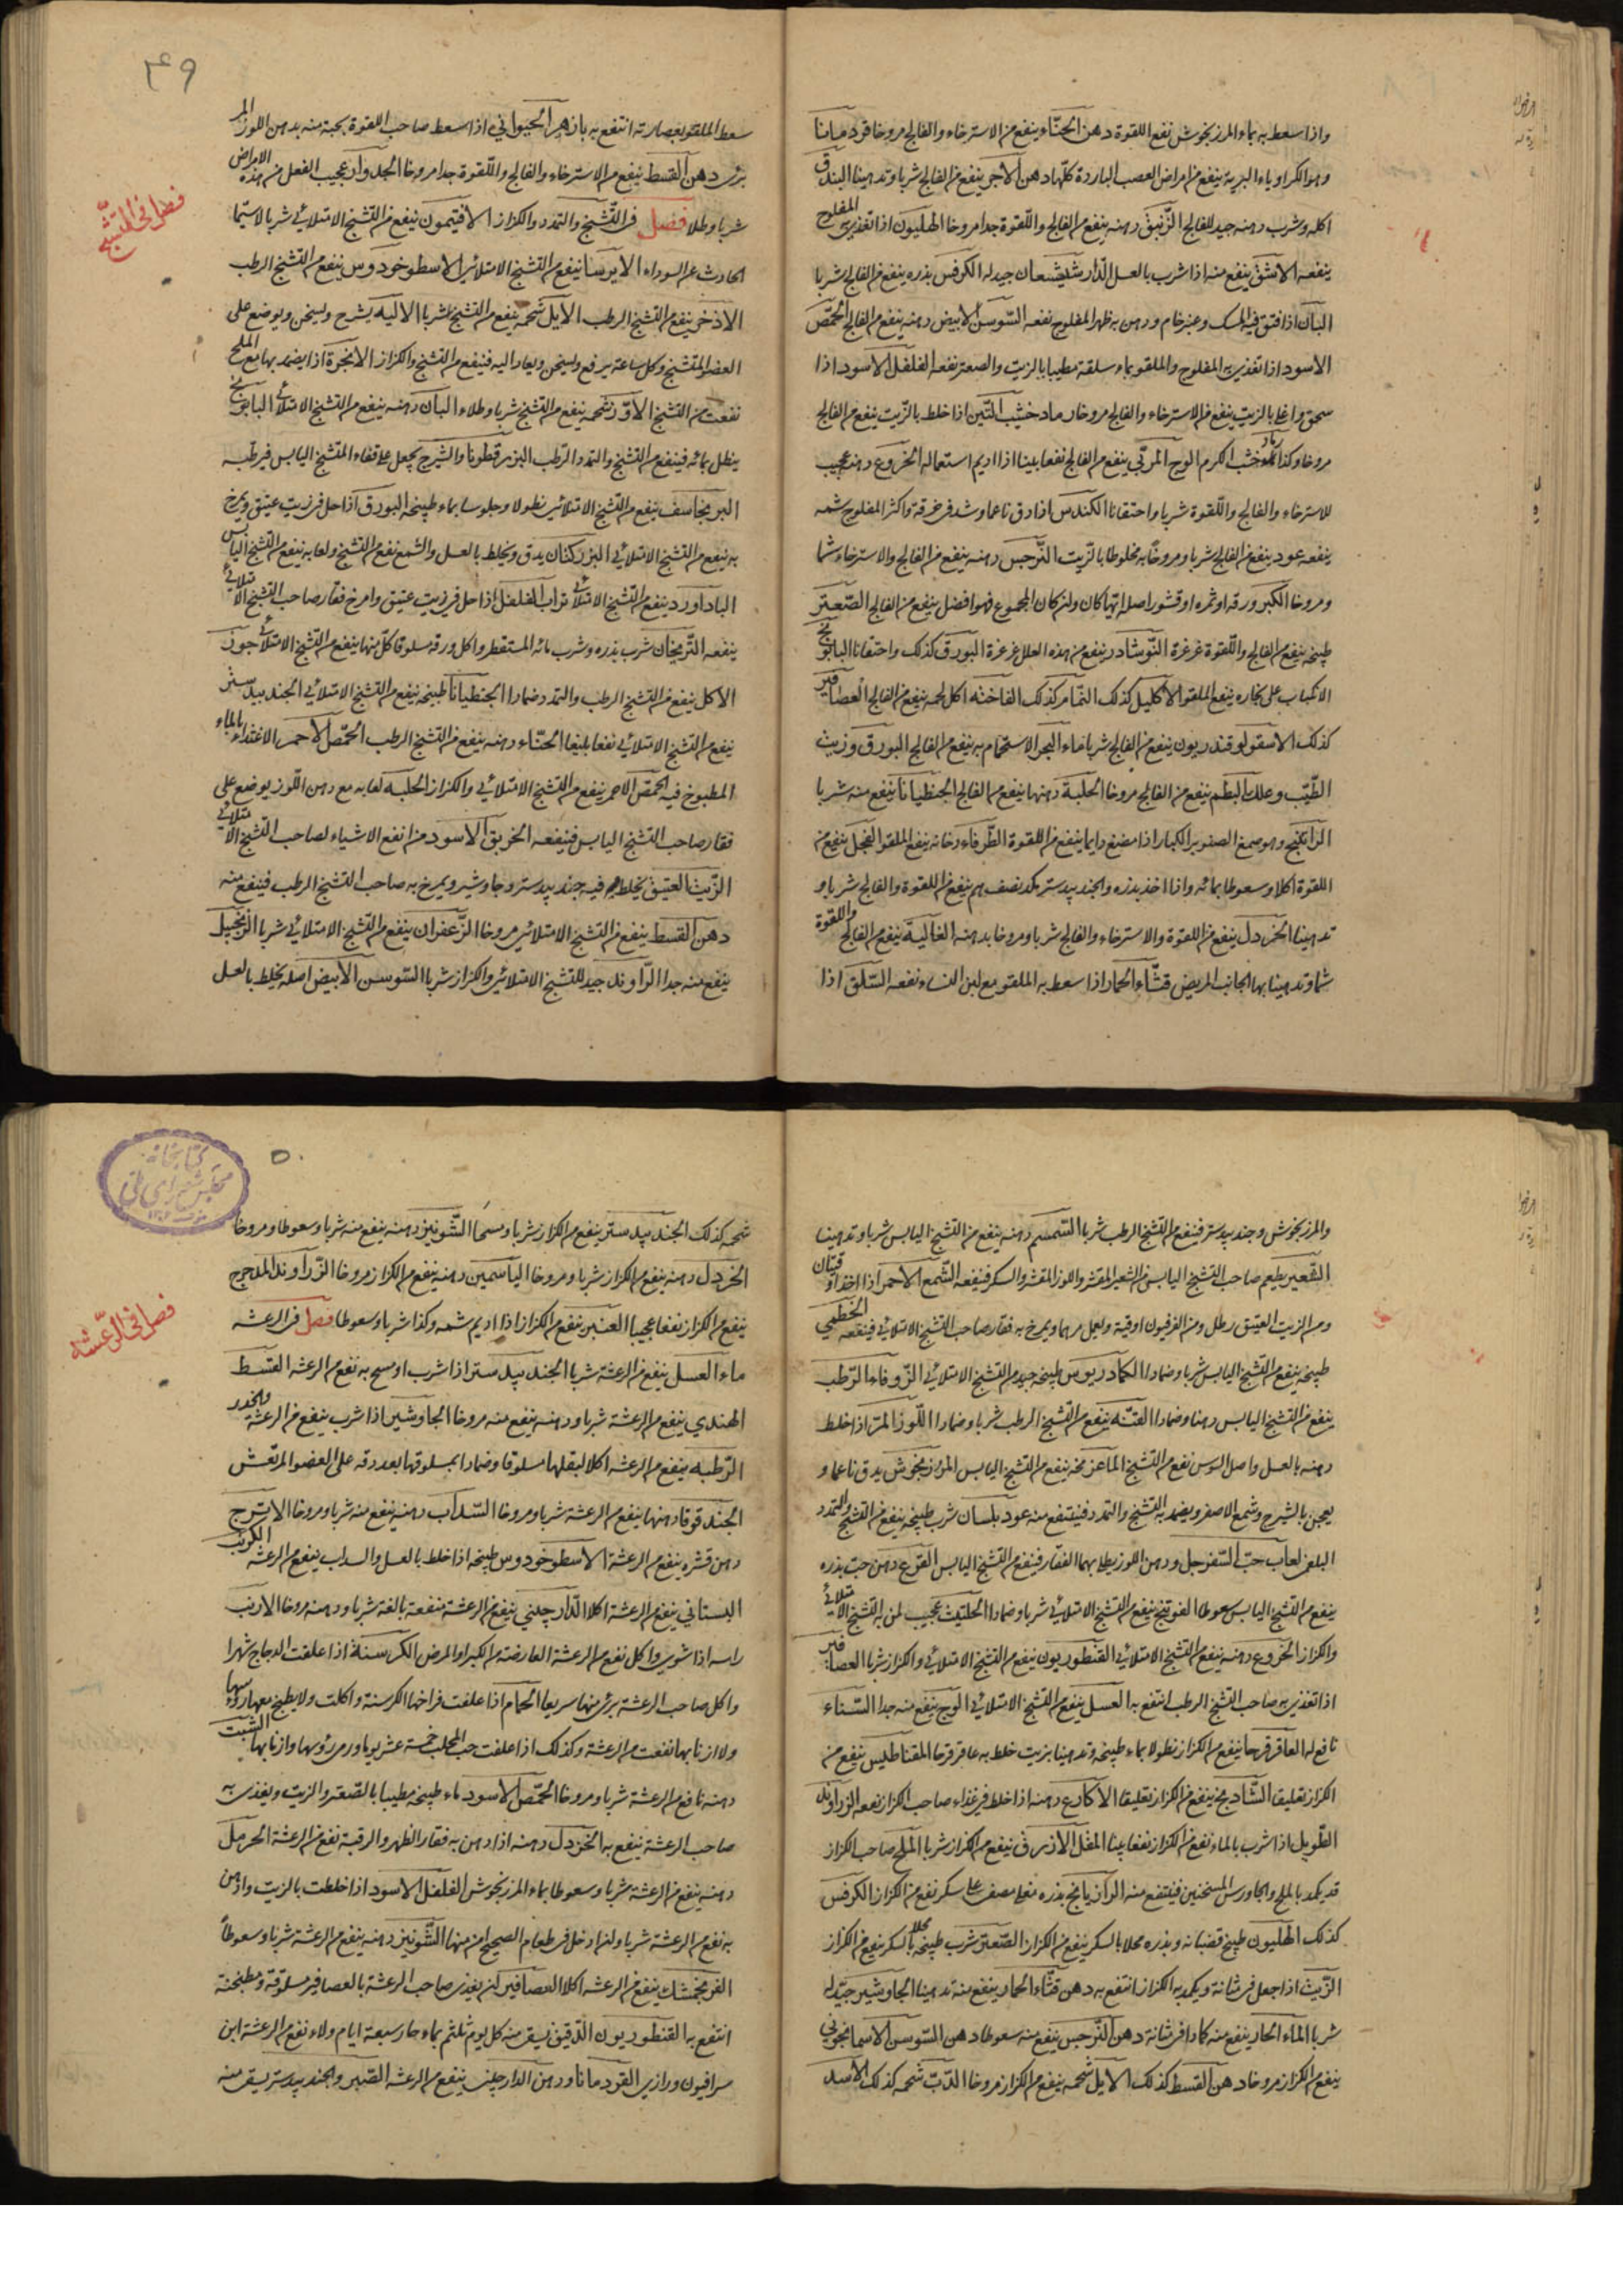 واذا سعط به بماء المرزنجوش نفع اللقوة دهن الحنّاء ينفع من الاسترخاء والفالج مروخا قردمانا
وهو الكراوياء البرية ينفع من امراض العصب الباردة كلّها دهن الآجر ينفع من الفالج شربا وتدهينا البندق
اكله وشرب دهنه جيد للفالج الزّنبق دهنه ينفع من الفالج واللّقوة جدا مروخا الهليون اذا تغذى به المفلوج
ينفعه الاشق ينفع منه اذا شرب بالعسل الدّارشيشعان جيد له الكرفس بذره ينفع من الفالج شربا
البان اذا فتق فيه المسك وعنبر خام ودهن به ظهر المفلوج نفعه السّوسن الابيض دهنه ينفع من الفالج الحمّص
الاسود اذا تغذى به المفلوج والملقو بماء سلقة مطيبا بالزيت والصعتر نفعه الفلفل الاسود اذا
سحق واغلي بالزيت ينفع من الاسترخاء والفالج مروخا رماد خشب التّين اذا خلط بالزّيت ينفع من الفالج
مروخا وكذا رماد خشب الكرم الوج المربّى ينفع من الفالج نفعا بليغا اذا اديم استعماله الخروع دهنه عجيب
للاسترخاء والفالج واللّقوة شربا واحتقانا الكندس اذا دق ناعما وشد في خرقة واكثر المفلوج شمه
ينفعه عود ينفع من الفالج شربا ومروخا به مخلوطا بالزّيت النّرجس دهنه ينفع من الفالج والاسترخاء شما
ومروخا الكبر ورقه او ثمره او قشور اصله ايّها كان وان كان المجموع فهو افضل ينفع من الفالج الصّعتر
طبيخه ينفع من الفالج واللّقوة غرغرة النّوشادر ينفع من هذه العلل غرغرة البورق كذلك واحتقانا البابونج
الانكباب على بخاره ينفع الملقو الاكليل كذلك النّمام كذلك الفاختة اكل لحمه ينفع من الفالج العصافير
كذلك الاسقولوقندريون ينفع من الفالج شربا ماء البحر الاستحمام به ينفع من الفالج البورق وزيت
الطّيب وعلك البطم ينفع من الفالج مروخا الحلبة دهنها ينفع من الفالج الجنطيانا ينفع منه شربا
الراتينج وهو صمغ الصنوبر الكبار اذا مضغ دايما ينفع من اللقوة الطّرفاء دخانه ينفع الملقو الفجل ينفع من
اللقوة اكلا وسعوطا بمائه واذا اخذ بذره والجندبيدستر نصف درهم ينفع من اللقوة والفالج شربا و
تدهينا الخردل ينفع من اللقوة والاسترخاء والفالج شربا ومروخا بدهنه الغالية ينفع من الفالج واللقوة
شما وتدهينا بها الجانب المريض قثّاء الحمار اذا سعط به الملقو مع لبن النساء نفعه السّلق اذا
۴۹
سعط الملقو بعصارته انتفع به بازهر الحيواني اذا سعط صاحب اللقوة بحبة منه بدهن اللوز المر
برئ دهن القسط ينفع من الاسترخاء والفالج واللّقوة جدا مروخا الجدوار عجيب الفعل من هذه الامراض
شربا وطلا فصل في التّشنج والتمدد والكزاز الافتيمون ينفع من التّشنج الامتلائي شربا لا سيما
الحادث عن السوداء الايرسا ينفع من التّشنج الامتلائي الاسطوخودوس ينفع من التّشنج الرطب
الاذخر ينفع من التّشنج الرطب الايل شحمه ينفع من التشنج شربا الالية يشرح ويسخن ويوضع على
العضو المتشنج وكل ساعة يرفع ويسخن ويعاد اليه فينفع من التشنج والكزاز الانجرة اذا يضمد بها مع الملح
نفعت من التشنج الاوّز شحمه ينفع من التشنج شربا وطلاء البان دهنه ينفع من التّشنج الامتلائي البابونج
ينطل بمائه فينفع من التشنج والتمدد الرّطب البزرقطونا والشيرج يجعل على قفاء المتشنج اليابس فيرطبه
البرنجاسف ينفع من التّشنج الامتلائي نطولا وجلوسا بماء طبيخه البورق اذا حل في زيت عتيق ويمرخ
به ينفع من التّشنج الامتلائي البزر كتان يدق ويخلط بالعسل والشمع نفع من التّشنج ولعابه ينفع من التّشنج اليابس
الباداورد ينفع من التّشنج الامتلائي تراب الفلفل اذا حل في زيت عتيق وامرخ فقار صاحب التّشنج الامتلائي
ينفعه التّرنجان شرب بذره وشرب مائه المستقطر واكل ورقه مسلوقا كلّ منها ينفع من التّشنج الامتلائي جوز
الاكل ينفع من التّشنج الرطب والتمدد ضمادا الجنطيانا طبيخه ينفع من التّشنج الامتلائي الجندبيدستر
ينفع من التّشنج الامتلائي نفعا بليغا الحنّاء دهنه ينفع من التّشنج الرطب الحمّص الاحمر الاغتذاء بالماء
المطبوخ فيه الحمّص الاحمر ينفع من التّشنج الامتلائي والكزاز الحلبة لعابه مع دهن اللّوز يوضع على
فقار صاحب التشنج اليابس فينفعه الخربق الاسود من انفع الاشياء لصاحب التّشنج الامتلائي
الزّيت العتيق يخلط فيه جندبيدستر وجاوشير ويمرخ به صاحب التشنج الرطب فينفع منه
دهن القسط ينفع من التّشنج الامتلائي مروخا الزّعفران ينفع من التّشنج الامتلائي شربا الزّنجبيل
ينفع منه جدا الرّاوند جيد للتّشنج الامتلائي والكزاز شربا السّوسن الابيض اصله يخلط بالعسل
فصل في التشنّج
والمرزنجوش وجندبيدستر فينفع من التّشنج الرطب شربا السّمسم دهنه ينفع من التّشنج اليابس شربا وتدهينا
يطعم صاحب التّشنج اليابس من الشعير المقشر واللوز المقشر والسكر فينفعه الشّمع الاحمر اذا اخذ اوقيتان
ومن الزيت العتيق رطل ومن الفرفيون اوقية ويعمل مرهما ويمرخ به فقار صاحب التّشنج الامتلائي فينفعه الخطمي
طبيخه ينفع من التّشنج اليابس شربا وضمادا الكمادريوس طبيخه جيد من التّشنج الامتلائي الزّوفاء الرّطب
ينفع من التّشنج اليابس دهنا وضمادا القنّة ينفع من التّشنج الرطب شربا وضمادا اللّوز المرّ اذا خلط
دهنه بالعسل واصل السوسن نفع من التّشنج الماعز مخه ينفع من التّشنج اليابس المرزنجوش يدق ناعما و
يعجن بالشيرج وشمع الاصفر ويضمد به التّشنج والتمدد فينتفع منه عود بلسان شرب طبيخه ينفع من التّشنج والتمدد
البلغمي لعاب حبّ السّفرجل ودهن اللوز يطلى بهما الفقار فينفع من التّشنج اليابس القرع دهن حبّ بذره
ينفع من التّشنج اليابس سعوطا الفوتنج ينفع من التّشنج الامتلائي شربا وضمادا الحلتيت عجيب لمن به التّشنج الامتلائي
والكزاز الخروع دهنه ينفع من التّشنج الامتلائي القنطوريون ينفع من التّشنج الامتلائي والكزاز شربا العصافير
اذا تغذى به صاحب التّشنج الرطب انتفع به العسل ينفع من التّشنج الامتلائي الوج ينفع منه جدا السّناء
نافع له العاقرقرحا ينفع من الكزاز نطولا بماء طبيخه وتدهينا بزيت خلط به عاقرقرحا المقناطيس ينفع من
الكزاز تعليقا الشّادنج ينفع من الكزاز تعليقا الاكارع دهنه اذا خلط في غذاء صاحب الكزاز نفعه الزراوند
الطّويل اذا شرب بالماء نفع من الكزاز نفعا بينا المقل الازرق ينفع من الكزاز شربا الملح صاحب الكزاز
قد يكمد بالملح والجاورس المسخنين فينتفع منه الرازيانج بذره سكر نفع من الكزاز الكرفس
كذلك الهليون طبيخ قضبانه وبذره محلا بالسكر ينفع من الكزاز الصّعتر شرب طبيخه محلا بالسكر ينفع من الكزاز
الزّيت اذا جعل في مثانة ويكمد به الكزاز انتفع به دهن قثّاء الحمار ينفع منه تدهينا الجاوشير جيّد له
شربا الماء الحار ينفع منه كمادا في مثانة دهن النّرجس ينفع منه سعوطا دهن السّوسن الاسمانجوني
ينفع من الكزاز مروخا دهن القسط كذلك الايل شحمه ينفع من الكزاز مروخا الدّبّ شحمه كذلك الاسد
۵۰
كتابخانه
مجلس شورای ملی
شحمه كذلك الجندبيدستر ينفع من الكزاز شربا ومسحا الشّونيز دهنه ينفع منه شربا وسعوطا ومروخا
الخردل دهنه ينفع من الكزاز شربا ومروخا الياسمين دهنه ينفع من الكزاز مروخا الزّراوند المدحرج
ينفع من الكزاز نفعا عجيبا العنبر ينفع من الكزاز اذا اديم شمه وكذا شربا وسعوطا فصل في الرعشه
ماء العسل ينفع من الرعشة شربا الجندبيدستر اذا شرب او مسح به نفع من الرعشه القسط
الهندي ينفع من الرعشة شربا ودهنه ينفع منه مروخا الجاوشير اذا شرب ينفع من الرعشة والخدر
الرّطبه ينفع من الرعشه اكلا لبقلها مسلوقا وضمادا بمسلوقها بعد دقه على العضو المرتعش
الجندقوقا دهنها ينفع من الرعشة شربا ومروخا السّداب دهنه ينفع منه شربا ومروخا الاترج
دهن قشره ينفع من الرعشة الاسطوخودوس طبيخه اذا خلط بالعسل والسداب ينفع من الرعشه الكرنب
البستاني ينفع من الرعشة اكلا الدّارچيني ينفع من الرعشة منفعة بالغة شربا ودهنه مروخا الارنب
راسه اذا شوي واكل نفع من الرعشة العارضة من الكبر او المرض الكرسنة اذا علفت الدجاج شهرا
واكل صاحب الرعشة برئ منها سريعا الحمام اذا علفت فراخها الكرسنة واكلت ولا يطبخ معها رؤسها
ولا اذنابها نفعت من الرعشة وكذلك اذا علفت حب المحلب خمسة عشر يوما ورمى رؤسها واذنابها الشبت
دهنه نافع من الرعشة شربا ومروخا الحمّص الاسود ماء طبيخه مطيبا بالصّعتر والزيت ويغذى به
صاحب الرعشة ينفع به الخردل دهنه اذا دهن به فقار الظهر والرقبة نفع من الرعشة الحرمل
دهنه ينفع من الرعشة شربا وسعوطا بماء المرزنجوش الفلفل الاسود اذا خلطت بالزيت وادهن
به نفع من الرعشة شربا وان ادخل في طعام الصحيح امن منها الشّونيز دهنه ينفع من الرعشة شربا وسعوطاً
الفرنجمشك ينفع من الرعشه اكلا العصافير ان يغذى صاحب الرعشة بالعصافير مسلوقة ومطبخة
انتفع به القنطوريون الدّقيق يسقى منه كل يوم بماء حار سبعة ايام ولاء نفع من الرعشة ابن
سرافيون ورازي القردمانا ودهن الدارچيني ينفع من الرعشه الصّبر والجندبيدستر يسقى منه
فصل في الرّعشه